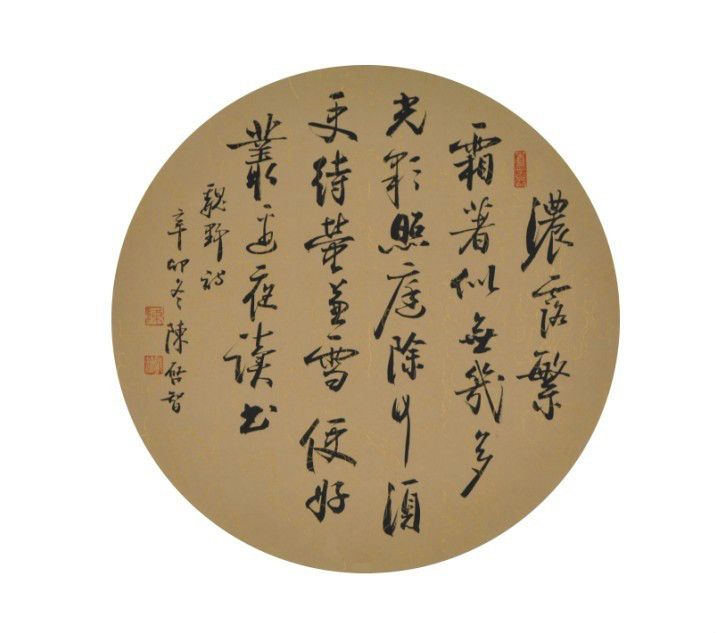 濃露繁
霜著似無幾多
光彩照庭除何須
更待螢兼雪便好
叢邊夜讀書
魏野詩
辛卯冬陳启智